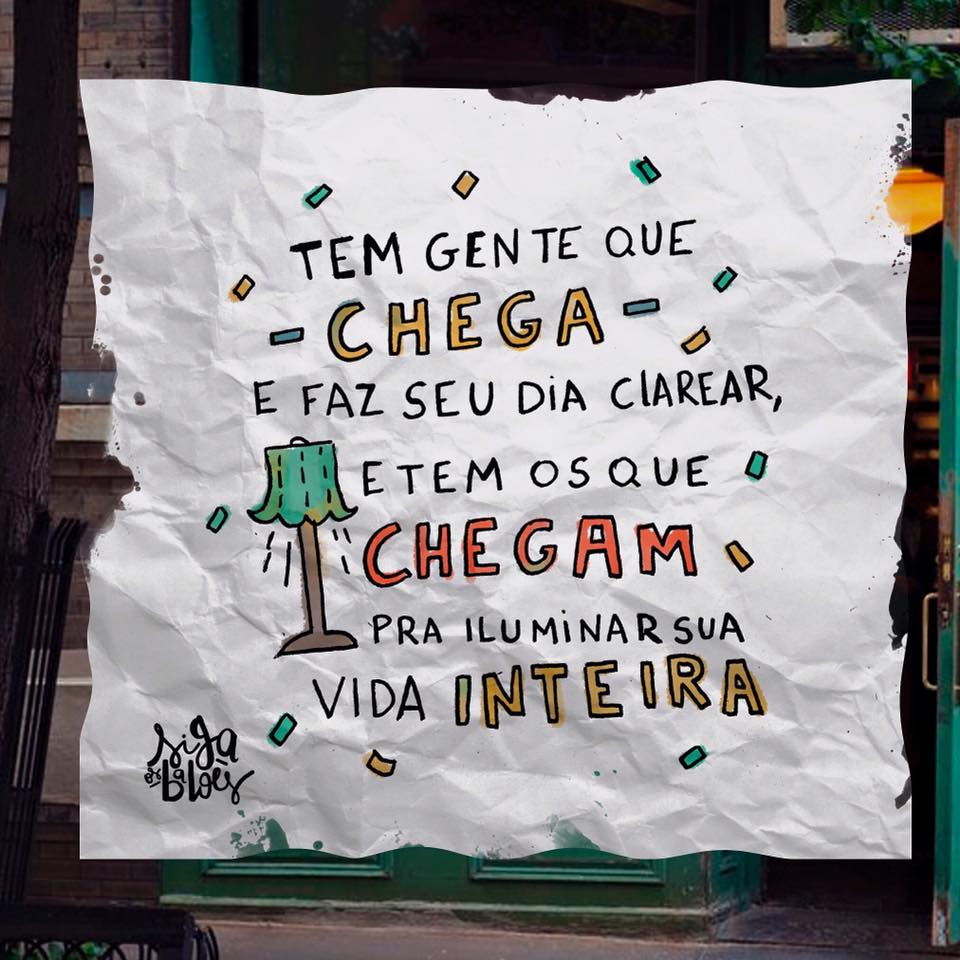 TEM GENTE QUE
- CHEGA -
E FAZ SEU DIA CLAREAR,
E TEM OS QUE
CHEGAM
PRA ILUMINAR SUA
VIDA INTEIRA
siga
os balões